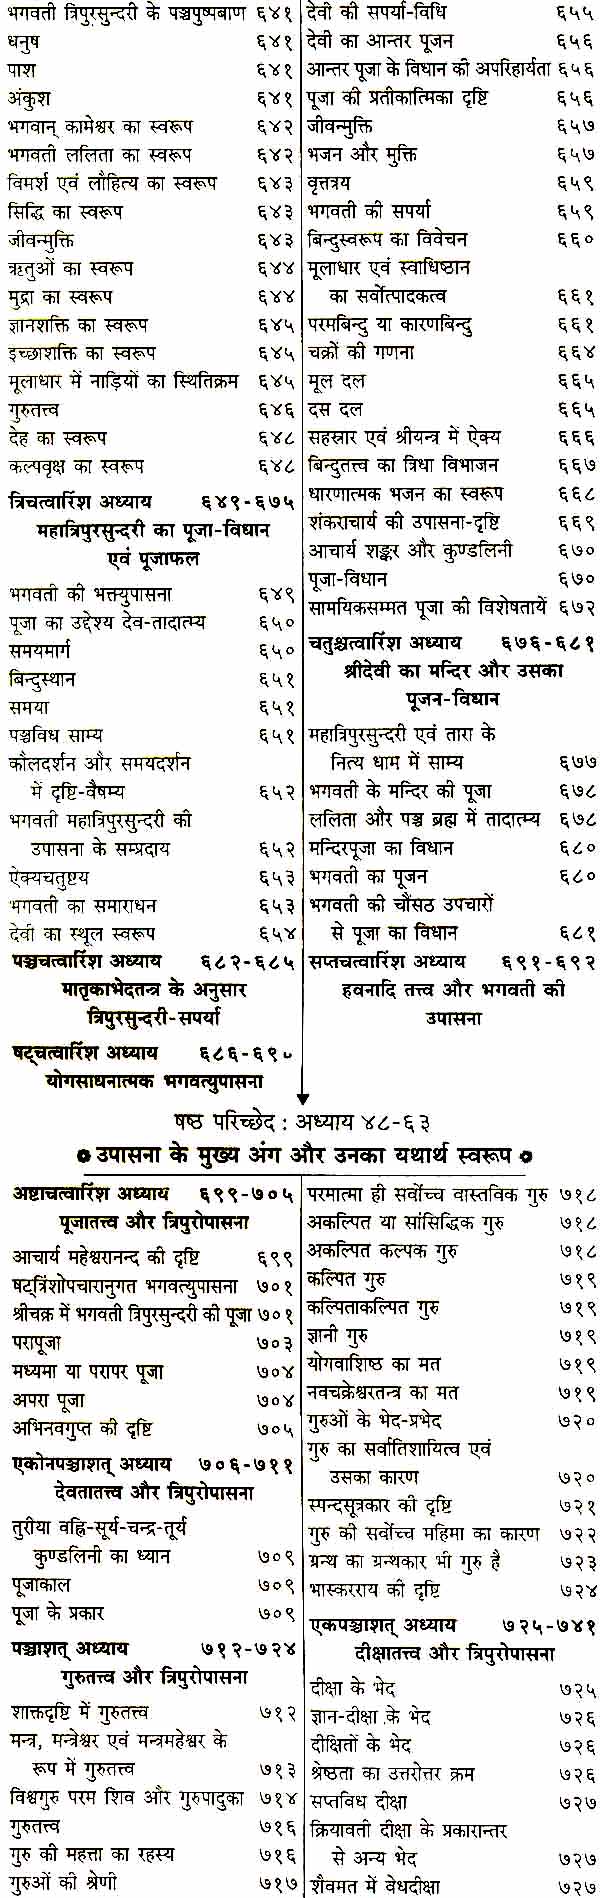 भगवती त्रिपुरसुन्दरी के पञ्चपुष्पबाण ६४१
धनुष ६४१
पाश ६४१
अंकुश ६४१
भगवान् कामेश्वर का स्वरूप ६४२
भगवती ललिता का स्वरूप ६४२
विमर्श एवं लौहित्य का स्वरूप ६४३
सिद्धि का स्वरूप ६४३
जीवन्मुक्ति ६४३
ऋतुओं का स्वरूप ६४४
मुद्रा का स्वरूप ६४४
ज्ञानशक्ति का स्वरूप ६४५
इच्छाशक्ति का स्वरूप ६४५
मूलाधार में नाड़ियों का स्थितिक्रम ६४५
गुरुतत्त्व ६४६
देह का स्वरूप ६४८
कल्पवृक्ष का स्वरूप ६४८
त्रिचत्वारिंश अध्याय ६४९-६७५
महात्रिपुरसुन्दरी का पूजा-विधान
एवं पूजाफल
भगवती की भक्त्युपासना ६४९
पूजा का उद्देश्य देव-तादात्म्य ६५०
समयमार्ग ६५०
बिन्दुस्थान ६५१
समया ६५१
पञ्चविध साम्य ६५१
कौलदर्शन और समयदर्शन
में दृष्टि-वैषम्य ६५२
भगवती महात्रिपुरसुन्दरी की
उपासना के सम्प्रदाय ६५२
ऐक्यचतुष्टय ६५३
भगवती का समाराधन ६५३
देवी का स्थूल स्वरूप ६५४
पञ्चचत्वारिंश अध्याय ६८२-६८५
मातृकाभेदतन्त्र के अनुसार
त्रिपुरसुन्दरी-सपर्या
षट्चत्वारिंश अध्याय ६८६-६९०
योगसाधनात्मक भगवत्युपासना
देवी की सपर्या-विधि ६५५
देवी का आन्तर पूजन ६५६
आन्तर पूजा के विधान की अपरिहार्यता ६५६
पूजा की प्रतीकात्मिका दृष्टि ६५६
जीवन्मुक्ति ६५७
भजन और मुक्ति ६५७
वृत्तत्रय ६५९
भगवती की सपर्या ६५९
बिन्दुस्वरूप का विवेचन ६६०
मूलाधार एवं स्वाधिष्ठान
का सर्वोत्पादकत्व ६६१
परमबिन्दु या कारणबिन्दु ६६१
चक्रों की गणना ६६४
मूल दल ६६५
दस दल ६६५
सहस्रार एवं श्रीयन्त्र में ऐक्य ६६६
बिन्दुतत्त्व का त्रिधा विभाजन ६६७
धारणात्मक भजन का स्वरूप ६६८
शंकराचार्य की उपासना-दृष्टि ६६९
आचार्य शङ्कर और कुण्डलिनी ६७०
पूजा-विधान ६७०
सामयिकसम्मत पूजा की विशेषतायें ६७२
चतुश्चत्वारिंश अध्याय ६७६-६८१
श्रीदेवी का मन्दिर और उसका
पूजन-विधान
महात्रिपुरसुन्दरी एवं तारा के
नित्य धाम में साम्य ६७७
भगवती के मन्दिर की पूजा ६७८
ललिता और पञ्च ब्रह्म में तादात्म्य ६७८
मन्दिरपूजा का विधान ६८०
भगवती का पूजन ६८०
भगवती की चौंसठ उपचारों
से पूजा का विधान ६८१
सप्तचत्वारिंश अध्याय ६९१-६९२
हवनादि तत्त्व और भगवती की
उपासना
षष्ठ परिच्छेद : अध्याय ४८-६३
उपासना के मुख्य अंग और उनका यथार्थ स्वरूप
अष्टाचत्वारिंश अध्याय ६९९-७०५
पूजातत्त्व और त्रिपुरोपासना
आचार्य महेश्वरानन्द की दृष्टि ६९९
षट्त्रिंशोपचारानुगत भगवत्युपासना ७०१
श्रीचक्र में भगवती त्रिपुरसुन्दरी की पूजा ७०१
परापूजा ७०३
मध्यमा या परापर पूजा ७०४
अपरा पूजा ७०४
अभिनवगुप्त की दृष्टि ७०५
एकोनपञ्चाशत् अध्याय ७०६-७११
देवतातत्त्व और त्रिपुरोपासना
तुरीया वह्नि-सूर्य-चन्द्र-तूर्य
कुण्डलिनी का ध्यान ७०९
पूजाकाल ७०९
पूजा के प्रकार ७०९
पञ्चाशत् अध्याय ७१२-७२४
गुरुतत्त्व और त्रिपुरोपासना
शाक्तदृष्टि में गुरुतत्त्व ७१२
मन्त्र, मन्त्रेश्वर एवं मन्त्रमहेश्वर के
रूप में गुरुतत्त्व ७१३
विश्वगुरु परम शिव और गुरुपादुका ७१४
गुरुतत्त्व ७१६
गुरु की महत्ता का रहस्य ७१६
गुरुओं की श्रेणी ७१७
परमात्मा ही सर्वोच्च वास्तविक गुरु ७१८
अकल्पित या सांसिद्धिक गुरु ७१८
अकल्पित कल्पक गुरु ७१८
कल्पित गुरु ७१९
कल्पिताकल्पित गुरु ७१९
ज्ञानी गुरु ७१९
योगवाशिष्ठ का मत ७१९
नवचक्रेश्वरतन्त्र का मत ७१९
गुरुओं के भेद-प्रभेद ७२०
गुरु का सर्वातिशायित्व एवं
उसका कारण ७२०
स्पन्दसूत्रकार की दृष्टि ७२१
गुरु की सर्वोच्च महिमा का कारण ७२२
ग्रन्थ का ग्रन्थकार भी गुरु है ७२३
भास्करराय की दृष्टि ७२४
एकपञ्चाशत् अध्याय ७२५-७४१
दीक्षातत्त्व और त्रिपुरोपासना
दीक्षा के भेद ७२५
ज्ञान-दीक्षा के भेद ७२६
दीक्षितों के भेद ७२६
श्रेष्ठता का उत्तरोत्तर क्रम ७२६
सप्तविध दीक्षा ७२७
क्रियावती दीक्षा के प्रकारान्तर
से अन्य भेद ७२७
शैवमत में वेधदीक्षा ७२७